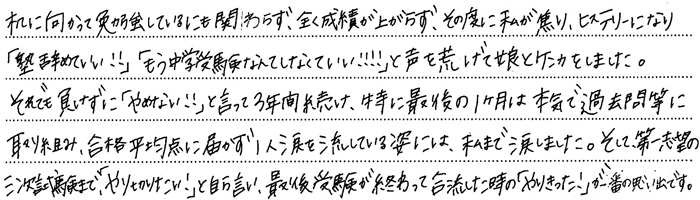 机に向かって勉強しているにも関わらず、全く成績が上がらず、その度に私が焦り、ヒステリーになり
「塾辞めていい!!」「もう中学受験なんてしなくていい!!!!」と声を荒げて娘とケンカをしました。
それでも負けずに「やめない!!」と言って3年間続け、特に最後の1ヶ月は本気で過去問等に
取り組み、合格平均点に届かず1人涙を流している姿には、私まで涙しました。そして、第一志望の
三次試験まで、「やりきりたい!」と自ら言い、最後受験が終わって合流した時の「やりきった!」が一番の思い出です。